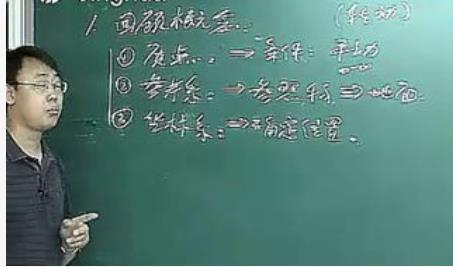 1. 回顾概念: (转动)
① 质点: ⇒ 条件: 平动
② 参考系: ⇒ 参照物 ⇒ 地面.
③ 坐标系: ⇒ 确定位置.